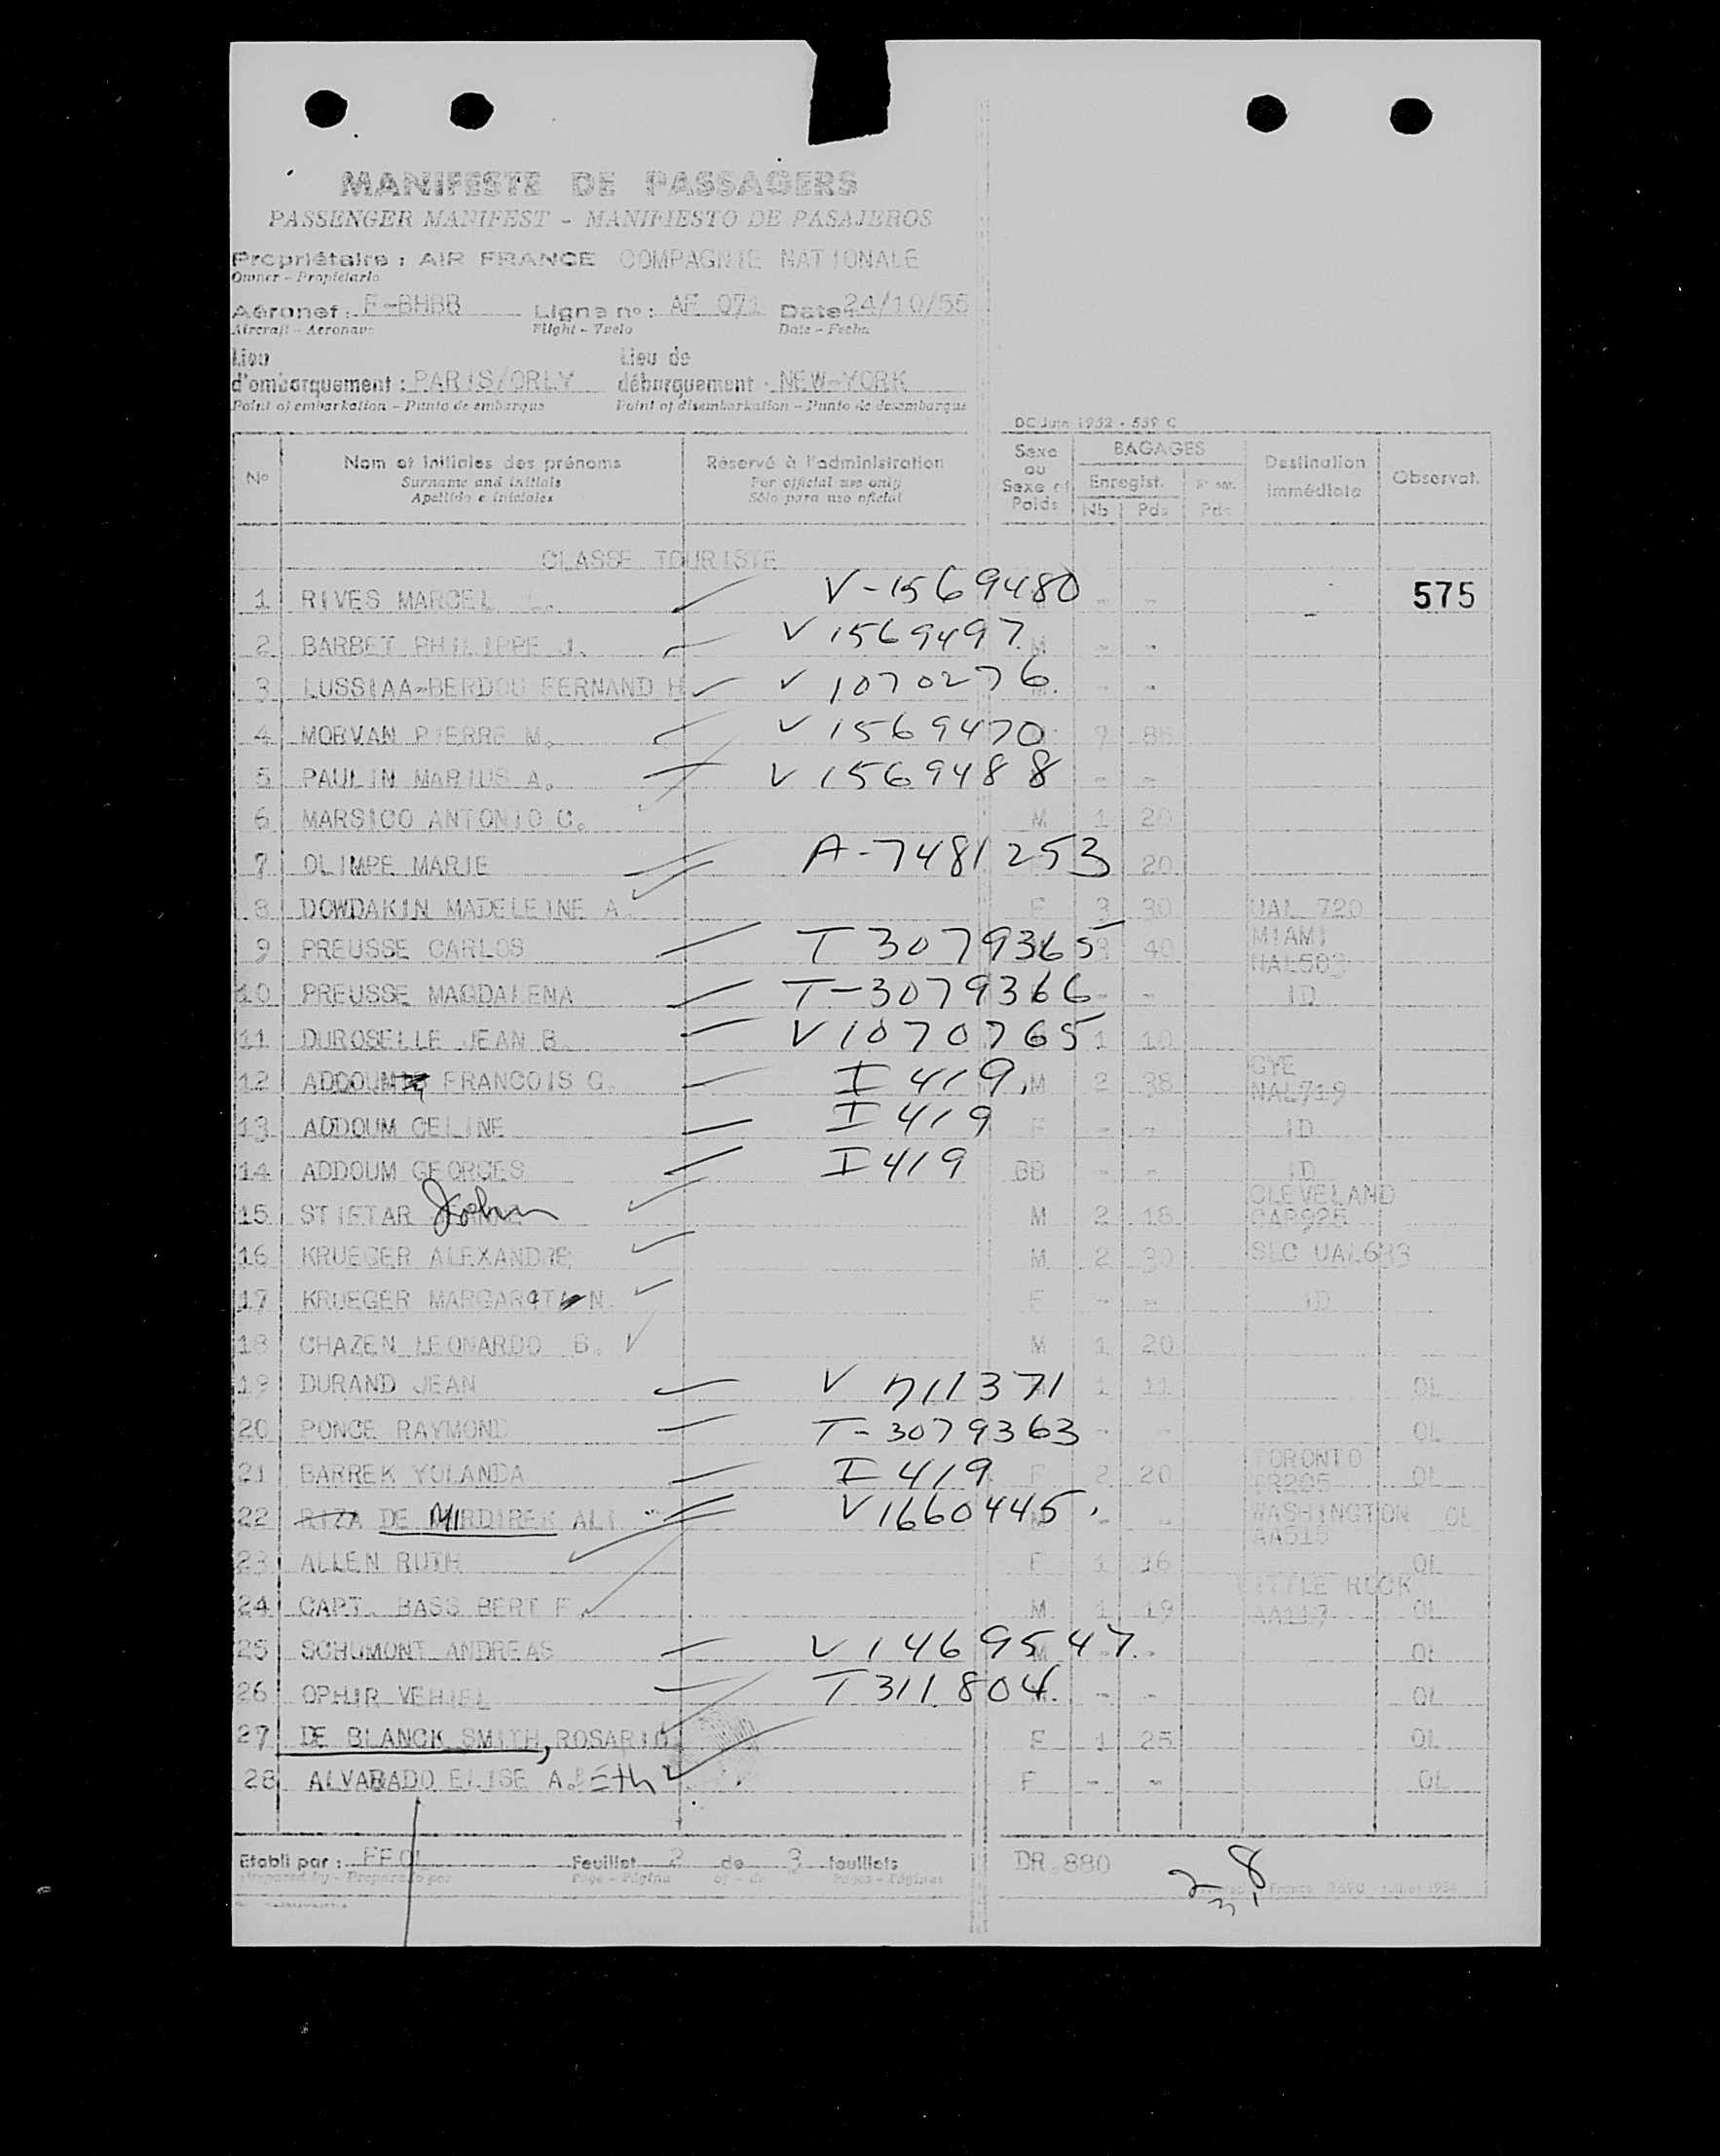 MANIFESTE DE PASSAGERS
PASSENGER MANIFEST - MANIFIESTO DE PASAJEROS
Propriétaire : AIR FRANCE COMPAGNIE NATIONALE
Owner - Propietario
Aéronef : F-BHBB Ligne nº : AF 071 Date 24/10/55
Aircraft - Aeronave Flight - Vuelo Date - Fecha
Lieu d'embarquement : PARIS/ORLY Lieu de débarquement : NEW-YORK
Point of embarkation - Punto de embarque Point of disembarkation - Punto de desembarque
DC Juin 1952 - 539 C
Nº Nom et initiales des prénoms Réservé à l'administration Sexe ou Sexe et Poids BAGAGES Destination immédiate Observat.
Surname and initials For official use only Enregist.
Apellido e iniciales Sólo para uso oficial Nb Pds Pds
CLASSE TOURISTE
1 RIVES MARCEL V-1569480 - - 575
2 BARBET PHILIPPE J. V 1569497 M - -
3 LUSSIAA-BERDOU FERNAND H V 1070276 M - -
4 MORVAN PIERRE M. V 1569470
5 PAULIN MARIUS A. V 1569488 - -
6 MARSICO ANTONIO C. M 1 20
7 OLIMPE MARIE A-7481253 20
8 DOWDAKIN MADELEINE A. F 3 30 UAL 720
9 PREUSSE CARLOS T 3079365 3 40 MIAMI NAL503
10 PREUSSE MAGDALENA T-3079366 - - ID
11 DUROSELLE JEAN B. V 1070765 1 10
12 ADDOUM FRANCOIS G. I 419. M 2 38 GYE NAL719
13 ADDOUM CELINE I 419 F - - ID
14 ADDOUM GEORGES I 419 BB - - ID
15 STIFTAR John M 2 18 CLEVELAND CAP925
16 KRUEGER ALEXANDRE M 2 30 SLC UAL683
17 KRUEGER MARGARITA N. F - - ID
18 CHAZEN LEONARDO B. M 1 20
19 DURAND JEAN V 711371 1 11 OL
20 PONCE RAYMOND T-3079363 - - OL
21 BARREK YOLANDA I 419 F 2 20 TORONTO OL
22 RIZA DE MIRDIREK ALI V1660445 M - - WASHINGTON AA515 OL
23 ALLEN RUTH F 1 16 OL
24 CAPT. BASS BERT F. M 1 19 LITTLE ROCK AA117 OL
25 SCHUMONT ANDREAS V 1469547 M - - OL
26 OPHIR YEHIEL T311804 M - - OL
27 DE BLANCK SMITH, ROSARIO F 1 25 OL
28 ALVARADO ELISE A. Eth F - - OL
Etabli par : Feuillet 2 de 3 feuillets DR 880 28
Prepared by - Preparado por Page - Página of - de Pages - Páginas